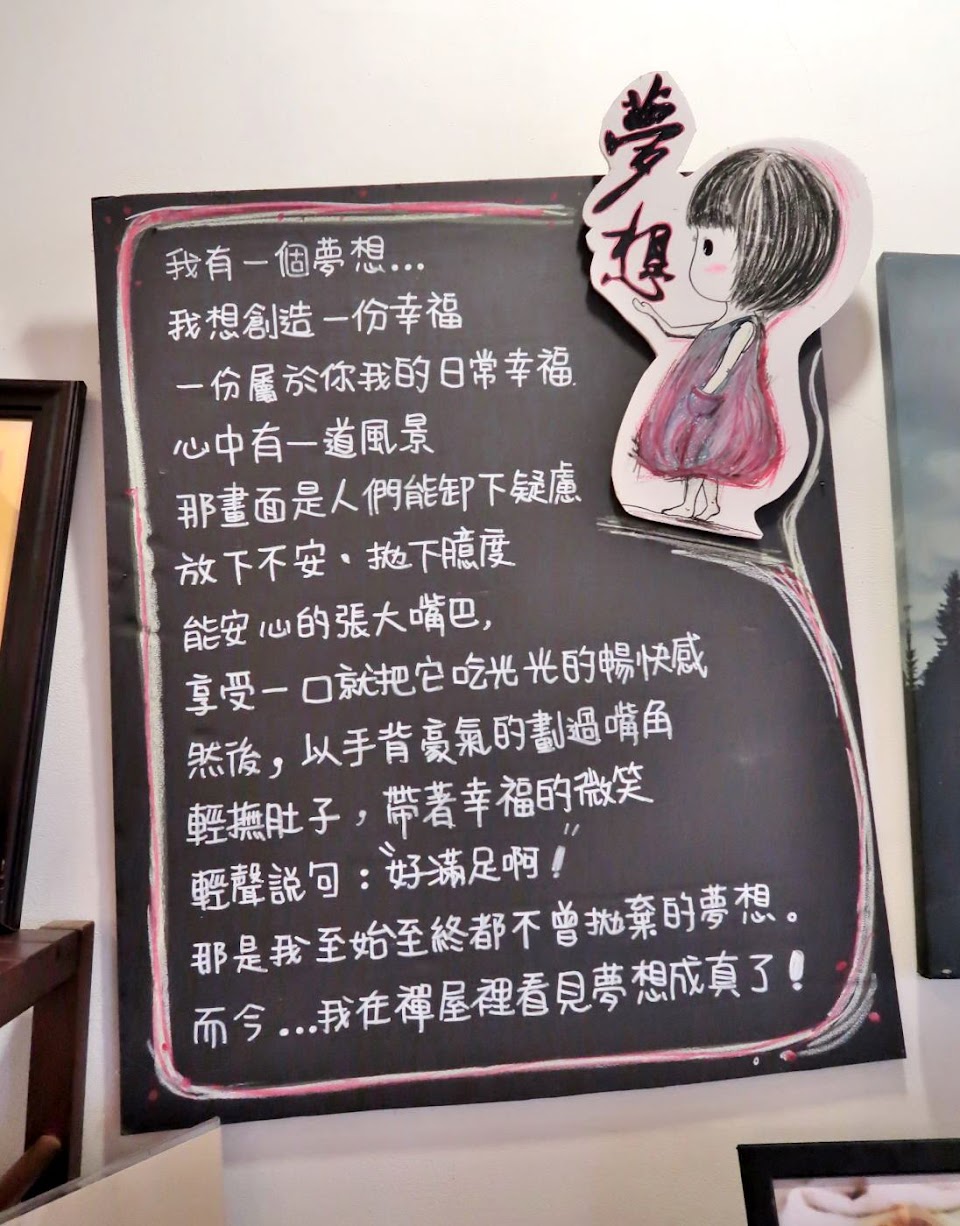 夢想
我有一個夢想...
我想創造一份幸福
一份屬於你我的日常幸福.
心中有一道風景
那畫面是人們能卸下疑慮
放下不安、拋下臆度
能安心的張大嘴巴,
享受一口就把它吃光光的暢快感
然後,以手背豪氣的劃過嘴角
輕撫肚子,帶著幸福的微笑
輕聲說句:"好滿足啊!"
那是我至始至終都不曾拋棄的夢想。
而今...我在禪屋裡看見夢想成真了!